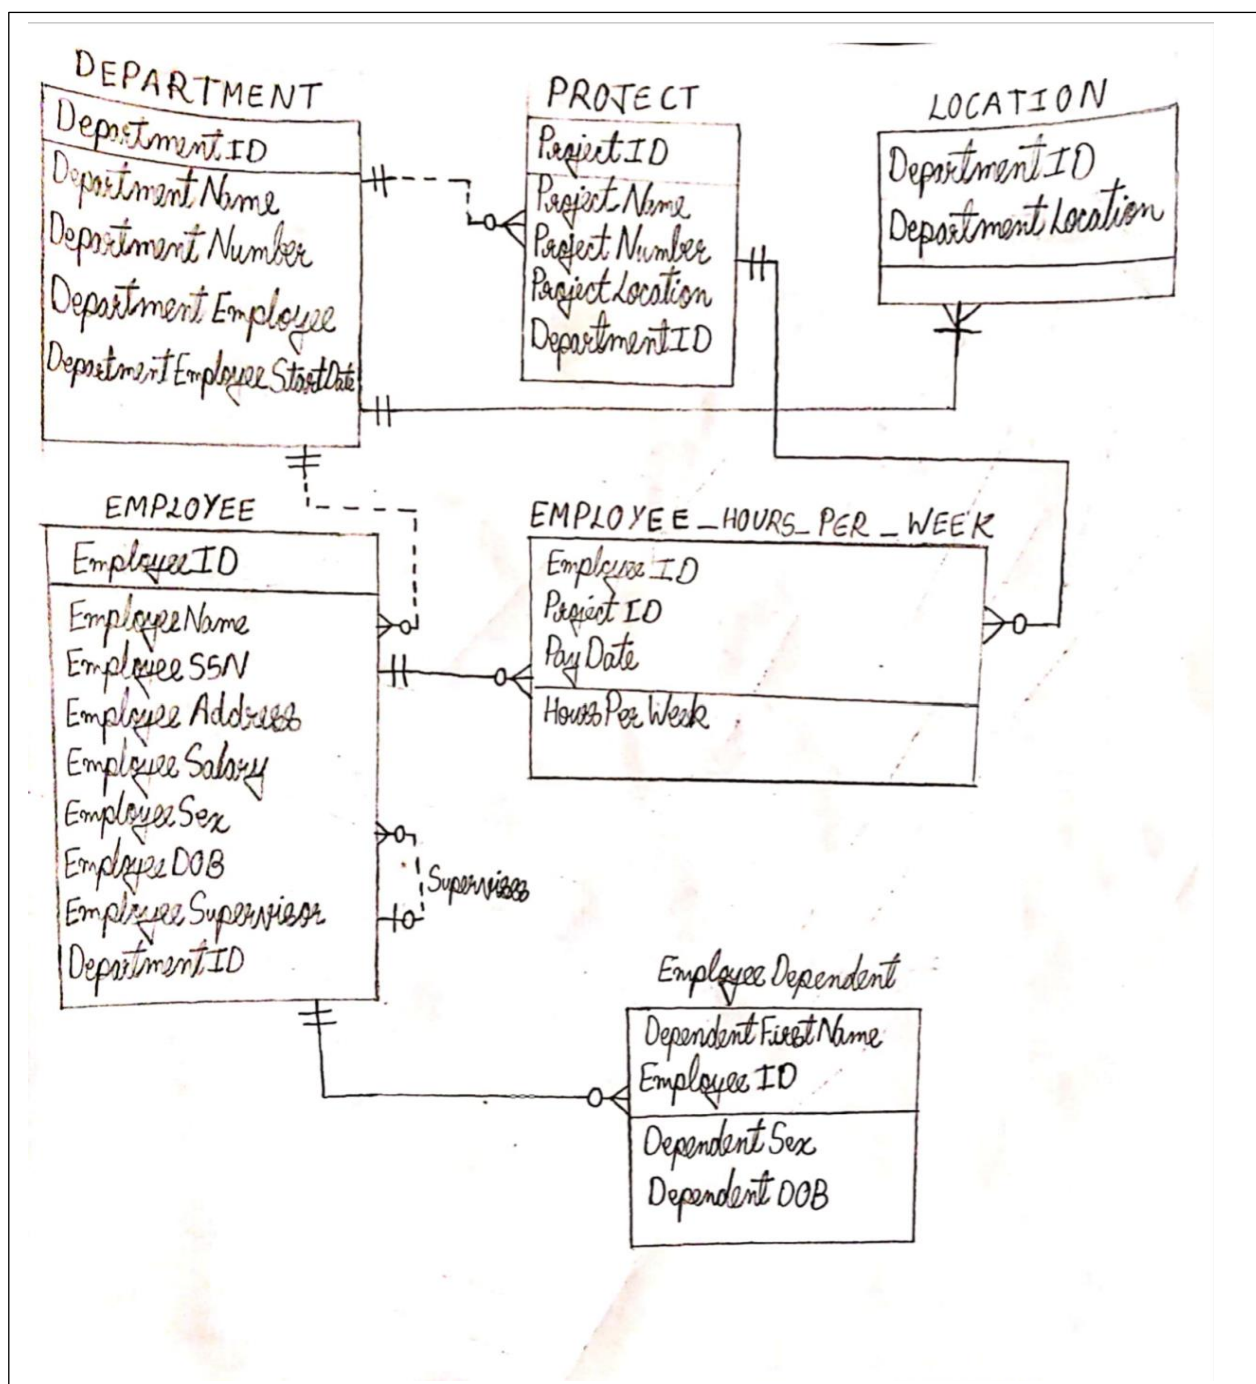 DEPARTMENT
DepartmentID
Department Name
Department Number
Department Employee
Department Employee StartDate
PROJECT
Project ID
Project Name
Project Number
Project Location
DepartmentID
LOCATION
Department ID
Department Location
EMPLOYEE
EmployeeID
Employee Name
Employee SSN
Employee Address
Employee Salary
Employee Sex
Employee DOB
Employee Supervisor
Department ID
Supervises
EMPLOYEE_HOURS_PER_WEEK
Employee ID
Project ID
Pay Date
Hours Per Week
Employee Dependent
Dependent First Name
Employee ID
Dependent Sex
Dependent DOB